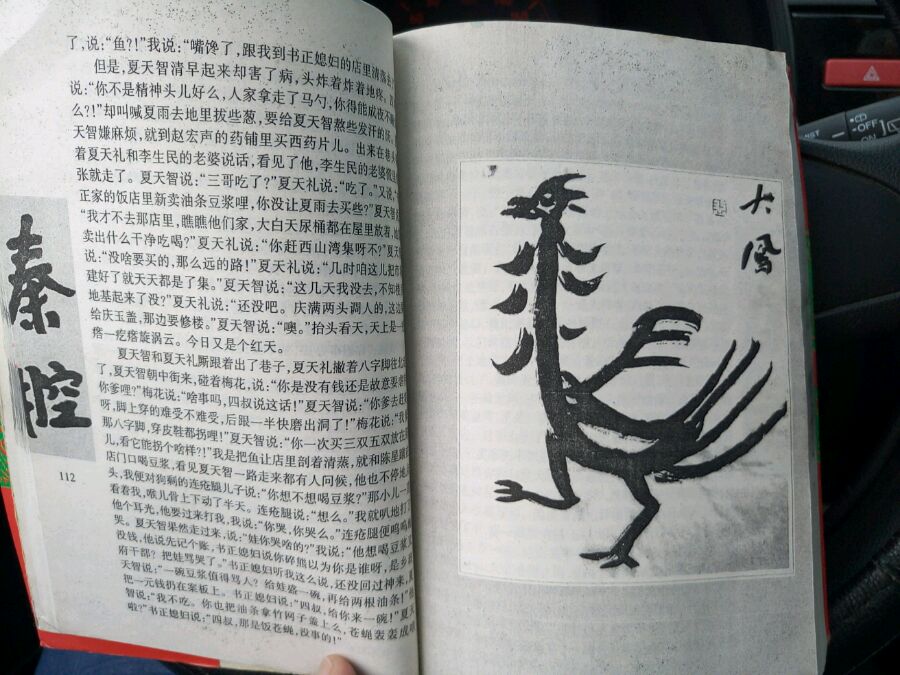 了,说:“鱼?!”我说:“嘴馋了,跟我到书正媳妇的店里清蒸去
但是,夏天智清早起来却害了病,头炸着炸着地疼。
说:“你不是精神头儿好么,人家拿走了马勺,你得能成夜不
么?!”却叫喊夏雨去地里拔些葱,要给夏天智熬些发汗的汤。
天智嫌麻烦,就到赵宏声的药铺里买西药片儿。出来在巷
着夏天礼和李生民的老婆说话,看见了他,李生民的老婆
张就走了。夏天智说:“三哥吃了?”夏天礼说:“吃了。”又说:
正家的饭店里新卖油条豆浆哩,你没让夏雨去买些?”夏天
“我才不去那店里,瞧瞧他们家,大白天尿桶都在屋里放着,
卖出什么干净吃喝?”夏天礼说:“你赶西山湾集呀不?”夏天
说:“没啥要买的,那么远的路!”夏天礼说:“几时咱这儿把市
建好了就天天都是了集。”夏天智说:“这几天我没去,不知
地基起来了没?”夏天礼说:“还没吧。庆满两头调人的,这边
给庆玉盖,那边要修楼。”夏天智说:“噢。”抬头看天,天上是一
疙一疙瘩旋涡云。今日又是个红天。
夏天智和夏天礼厮跟着出了巷子,夏天礼撇着八字脚往
了,夏天智朝中街来,碰着梅花,说:“你是没有钱还是故意要
你爹哩?”梅花说:“啥事吗,四叔说这话!”夏天智说:“你爹去赶
呀,脚上穿的难受不难受,后跟一半快磨出洞了!”梅花说:“我
那八字脚,穿皮鞋都拐哩!”夏天智说:“你一次买三双五双放在
儿,看它能拐个啥样?!”我是把鱼让店里剖着清蒸,就和陈星蹴
店门口喝豆浆,看见夏天智一路走来都有人问候,他也不停地
头,我便对狗剩的连疮腿儿子说:“你想不想喝豆浆?”那小儿一
看着我,喉儿骨上下动了半天。连疮腿说:“想么。”我就叭地打
他个耳光,他要过来打我,我说:“你哭,你哭么。”连疮腿便呜呜
哭。夏天智果然走过来,说:“娃你哭啥的?”我说:“他想喝豆浆
没钱,他说先记个账,书正媳妇说你碎熊以为你是谁呀,是乡
府干部?把娃骂哭了。”书正媳妇听我这么说,还没回过神来,夏
天智说:“一碗豆浆值得骂人?给娃盛一碗,再给两根油条!”
把一元钱扔在案板上。书正媳妇说:“四叔,给你来一碗!”夏
智说:“我不吃。你也把油条拿竹网子盖上么,苍蝇轰轰成
啦?”书正媳妇说:“四叔,那是饭苍蝇,没事的!”
秦腔
112
大凤